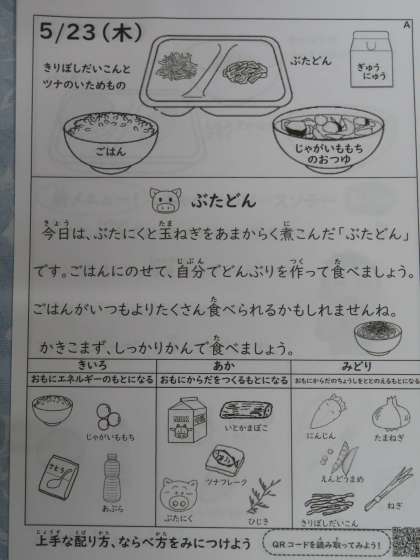 5/23(木)
A
きりぼしだいこんと
ツナのいためもの
ぶたどん
ぎゅう
にゅう
ごはん
じゃがいももち
のおつゆ
ぶたどん
今日は、ぶたにくと玉ねぎをあまからく煮こんだ「ぶたどん」
です。ごはんにのせて、自分でどんぶりを作って食べましょう。
ごはんがいつもよりたくさん食べられるかもしれませんね。
かきこまず、しっかりかんで食べましょう。
きいろ
おもにエネルギーのもとになる
あか
おもにからだをつくるもとになる
みどり
おもにからだのちょうしをととのえるもとになる
じゃがいももち
さとう
あぶら
いとかまぼこ
ツナフレーク
ぶたにく
ひじき
にんじん
たまねぎ
えんどうまめ
きりぼしだいこん
ねぎ
上手な配り方、ならべ方をみにつけよう
QRコードを読み取ってみよう!